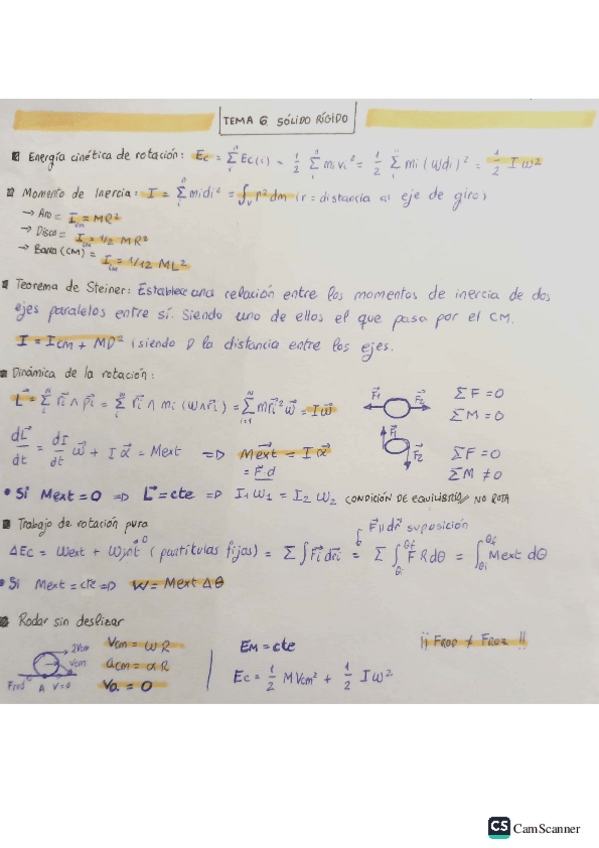 TEMA 6 SÓLIDO RÍGIDO
Energía cinética de rotación: Ec = Σ Ec(i) = 1/2 Σ mi vi² = 1/2 Σ mi (ωdi)² = 1/2 I ω²
Momento de Inercia: I = Σ midi² = ∫v r² dm (r = distancia al eje de giro)
→ Aro = Icm = MR²
→ Disco = Icm = 1/2 MR²
→ Barra (CM) = Icm = 1/12 ML²
Teorema de Steiner: Establece una relación entre los momentos de inercia de dos
ejes paralelos entre sí. Siendo uno de ellos el que pasa por el CM.
I = Icm + MD² (siendo D la distancia entre los ejes.
Dinámica de la rotación:
L = Σ ri ∧ pi = Σ ri ∧ mi (ω∧ri) = Σ mri² ω = Iω
F1 F2 ΣF = 0
ΣM = 0
dL/dt = dI/dt ω + I α = Mext => Mext = I α
= F.d
F1 F2 ΣF = 0
ΣM ≠ 0
• Si Mext = 0 => L = cte => I1 ω1 = I2 ω2 CONDICIÓN DE EQUILIBRIO/ NO ROTA
Trabajo de rotación pura F || dr suposición
ΔEc = Wext + Wint 0 (partículas fijas) = Σ ∫ Fi dri = Σ ∫θi θf F R dθ = ∫θi θf Mext dθ
• Si Mext = cte => W = Mext Δθ
Rodar sin deslizar
2Vcm
Vcm
Frod A V=0
Vcm = ω R
acm = α R
Va = 0
EM = cte
Ec = 1/2 M Vcm² + 1/2 I ω²
¡¡ FROD ≠ FROZ !!
CS CamScanner